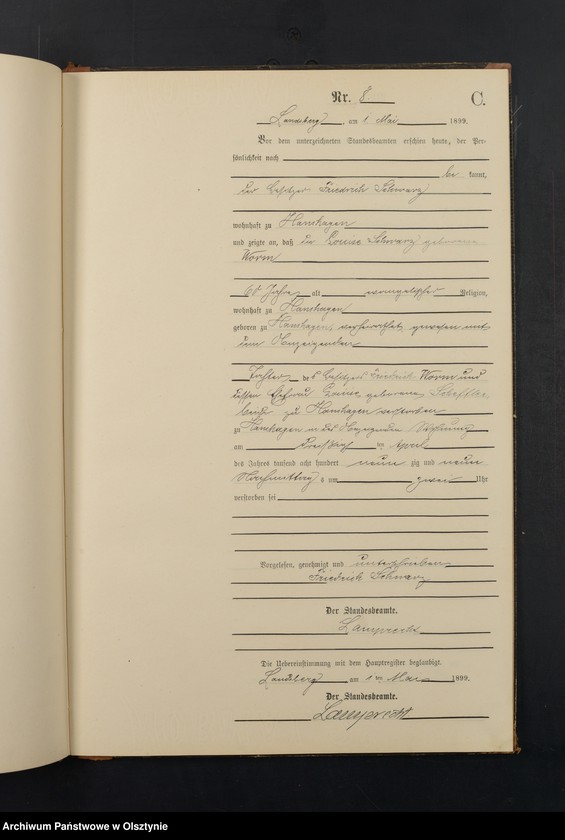 Nr. 8. C.
Landsberg, am 1 Mai 1899.
Vor dem unterzeichneten Standesbeamten erschien heute, der Per-
sönlichkeit nach
be kannt,
der Besitzer Friedrich Schwarz
wohnhaft zu Hanshagen
und zeigte an, daß die Louise Schwarz geborene
Worm
60 Jahre alt evangelischer Religion,
wohnhaft zu Hanshagen
geboren zu Hanshagen, verheirathet gewesen mit
dem Anzeigenden
Tochter des Besitzers Friedrich Worm und
dessen Ehefrau Louise geborene
beide zu Hanshagen verstorben
zu Hanshagen in des Wohnung
am April
des Jahres tausend acht hundert neun zig und neun
Nachmittags um zwei Uhr
verstorben sei
Vorgelesen, genehmigt und unterschrieben
Friedrich Schwarz
Der Standesbeamte.
Lamprecht
Die Uebereinstimmung mit dem Hauptregister beglaubigt.
Landsberg am 1 ten Mai 1899.
Der Standesbeamte.
Lamprecht
Archiwum Państwowe w Olsztynie